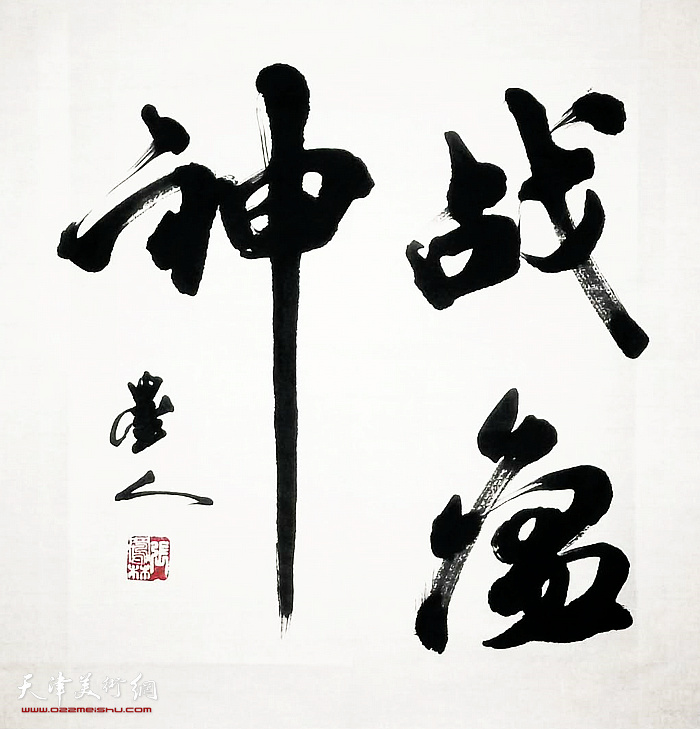 战瘟
神
墨人
天津美術網
www.022meishu.com